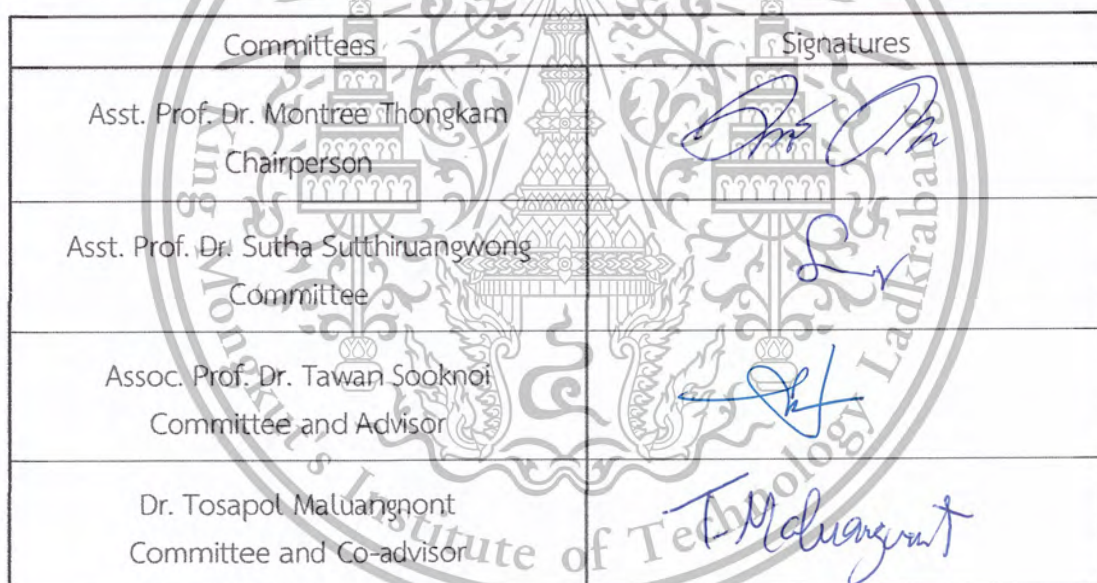 Committees Signatures
Asst. Prof. Dr. Montree Thongkam
Chairperson
Asst. Prof. Dr. Sutha Sutthiruangwong
Committee
Assoc. Prof. Dr. Tawan Sooknoi
Committee and Advisor
Dr. Tosapol Maluangnont
Committee and Co-advisor
T. Maluangnont
King Mongkut's Institute of Technology Ladkrabang